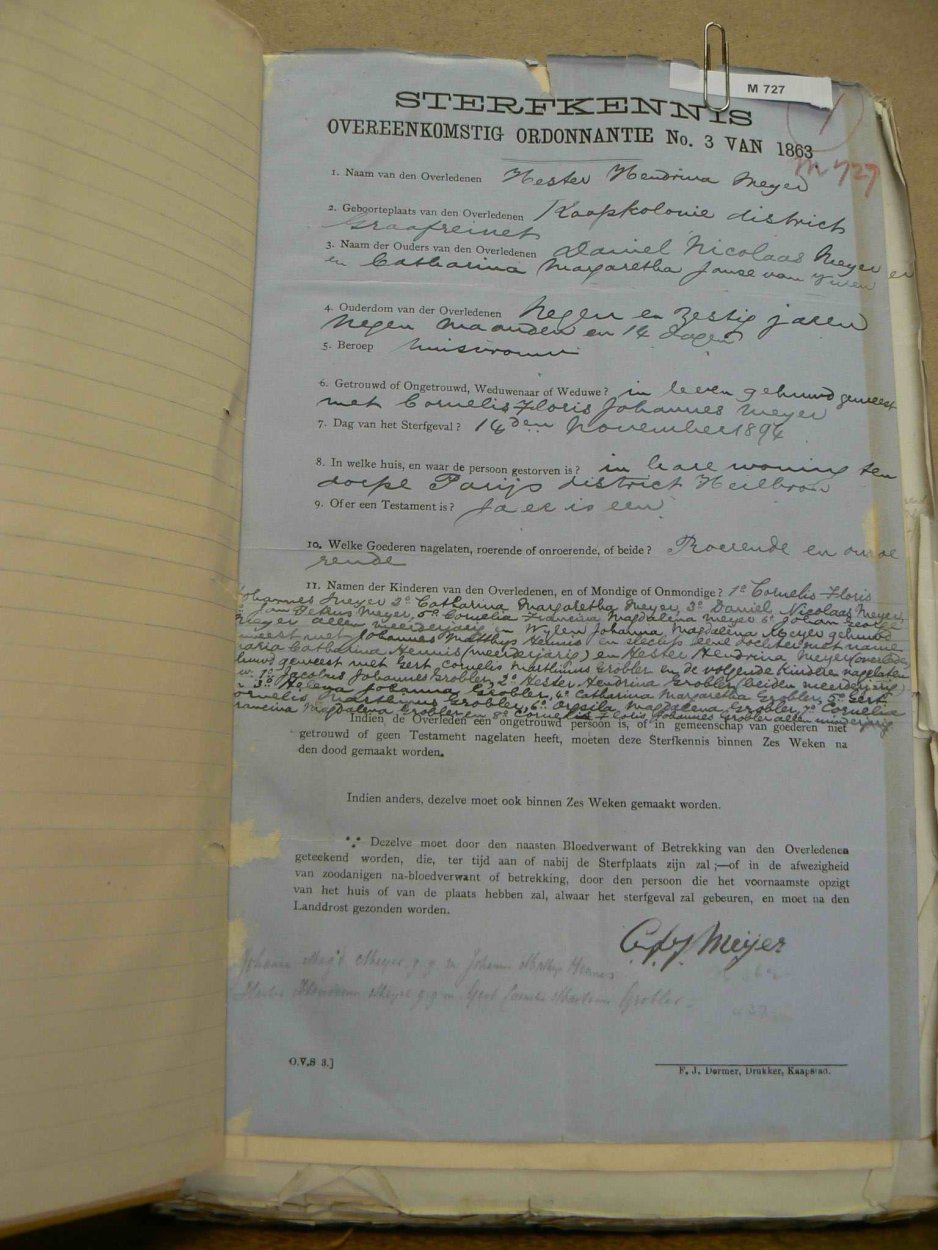 M 727
STERFKENNIS
OVEREENKOMSTIG ORDONNANTIE No. 3 VAN 1863
M 727
1. Naam van den Overledenen Hester Hendrina Meyer
2. Geboorteplaats van den Overledenen Kaapkolonie district
Graafreinet
3. Naam der Ouders van den Overledenen Daniel Nicolaas Meyer
en Catharina Margaretha Janse van
4. Ouderdom van der Overledenen Negen en Zestig jaren
Negen maanden en 14 dagen
5. Beroep huisvrouw
6. Getrouwd of Ongetrouwd, Weduwenaar of Weduwe? in leven gehuwd geweest
met Cornelis Floris Johannes Meyer
7. Dag van het Sterfgeval? 14den November 1894
8. In welke huis, en waar de persoon gestorven is? in hare woning ten
dorpe Parijs district Heilbron
9. Of er een Testament is? Ja er is een
10. Welke Goederen nagelaten, roerende of onroerende, of beide? Roerende en onroe
rende
11. Namen der Kinderen van den Overledenen, en of Mondige of Onmondige? 1e Cornelis Floris
Johannes Meyer 2e Catharina Margaretha Meyer, 3e Daniel Nicolaas Meyer
Jan Petrus Meyer, 5e Cornelia Francina Magdalena Meyer 6e Johan
Meyer allen meerderjarig en Wylen Johanna Magdalena Meyer gehuwd
geweest met Johannes Matthys Hennis en slechts eene dochter met name
Maria Catharina Hennis (meerderjarig) en Hester Hendrina Meyer (overleden
gehuwd geweest met Gert Cornelis Marthinus Grobler en de volgende kinderen nagelaten
1e Jacobus Johannes Grobler, 2e Hester Hendrina Grobler (beiden meerderjarig)
3e Helena Johanna Grobler, 4e Catharina Margaretha Grobler, 5e Gert
Cornelis Marthinus Grobler, 6e Magdalena Grobler, 7e Cornelia
Francina Magdalena Grobler en 8e Cornelis Floris Johannes Grobler allen minderjarig
Indien de Overleden een ongetrouwd persoon is, of in gemeenschap van goederen niet
getrouwd of geen Testament nagelaten heeft, moeten deze Sterfkennis binnen Zes Weken na
den dood gemaakt worden.
Indien anders, dezelve moet ook binnen Zes Weken gemaakt worden.
Dezelve moet door den naasten Bloedverwant of Betrekking van den Overledenen
geteekend worden, die, ter tijd aan of nabij de Sterfplaats zijn zal;—of in de afwezigheid
van zoodanigen na-bloedverwant of betrekking, door den persoon die het voornaamste opzigt
van het huis of van de plaats hebben zal, alwaar het sterfgeval zal gebeuren, en moet na den
Landdrost gezonden worden.
C.F.J. Meijer
Meyer g.g. m Johann
Meyer g.g. m Gert Grobler
O.V.S 3.]
F. J. Dormer, Drukker, Kaapstad.